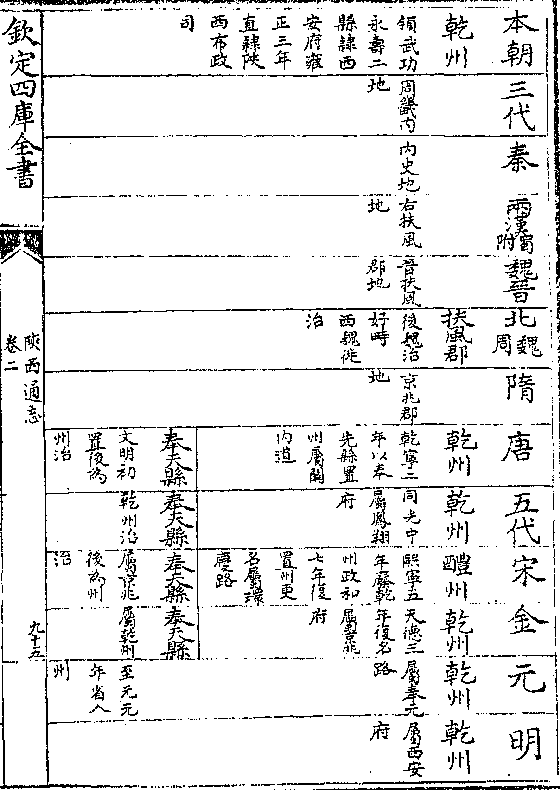 本朝
乾州
領武功
永壽二
縣隸西
安府雍
正三年
直隸陝
西布政
司
三代
周畿内
地
秦
内史地
兩漢
蜀附
右扶風
地
魏晉
晉扶風
郡地
北魏周
扶風郡
後魏治
好畤
西魏徙
治
隋
京兆郡
地
唐
乾州
乾寧二
年以奉
先縣置
州屬關
内道
奉天縣
文明初
置後為
州治
五代
乾州
同光中
屬鳳翔
府
奉天縣
乾州治
宋
醴州
熙寧五
年廢乾
州政和
七年復
置州更
名屬環
慶路
奉天縣
屬京兆
後為州
治
金
乾州
天德三
年復名
屬京兆
府
奉天縣
屬乾州
元
乾州
屬奉元
路
至元元
年省入
州
明
乾州
屬西安
府
欽定四庫全書
陝西通志
卷二
九十五